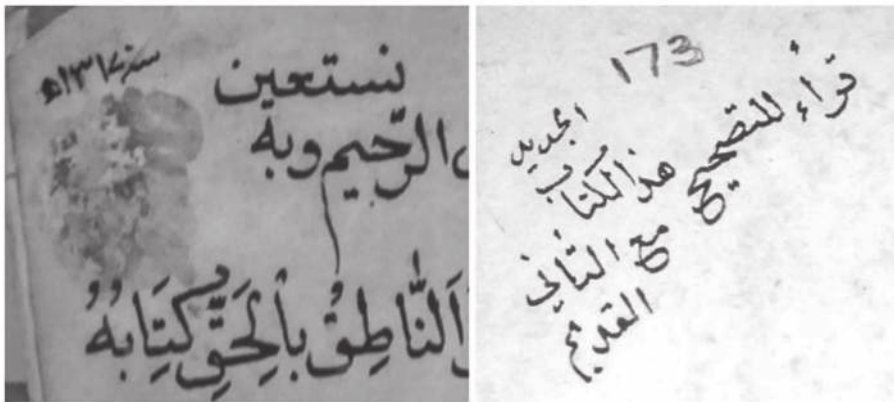 سنة ١٣١٧ه
نستعين
الرّحيم وبه
اَلنَّاطِقُ بِاْلحَقِّ كِتَابُهُ
173
قرأء للتصحيح
هذالكتاب الجديد
مع الثاني
القديم